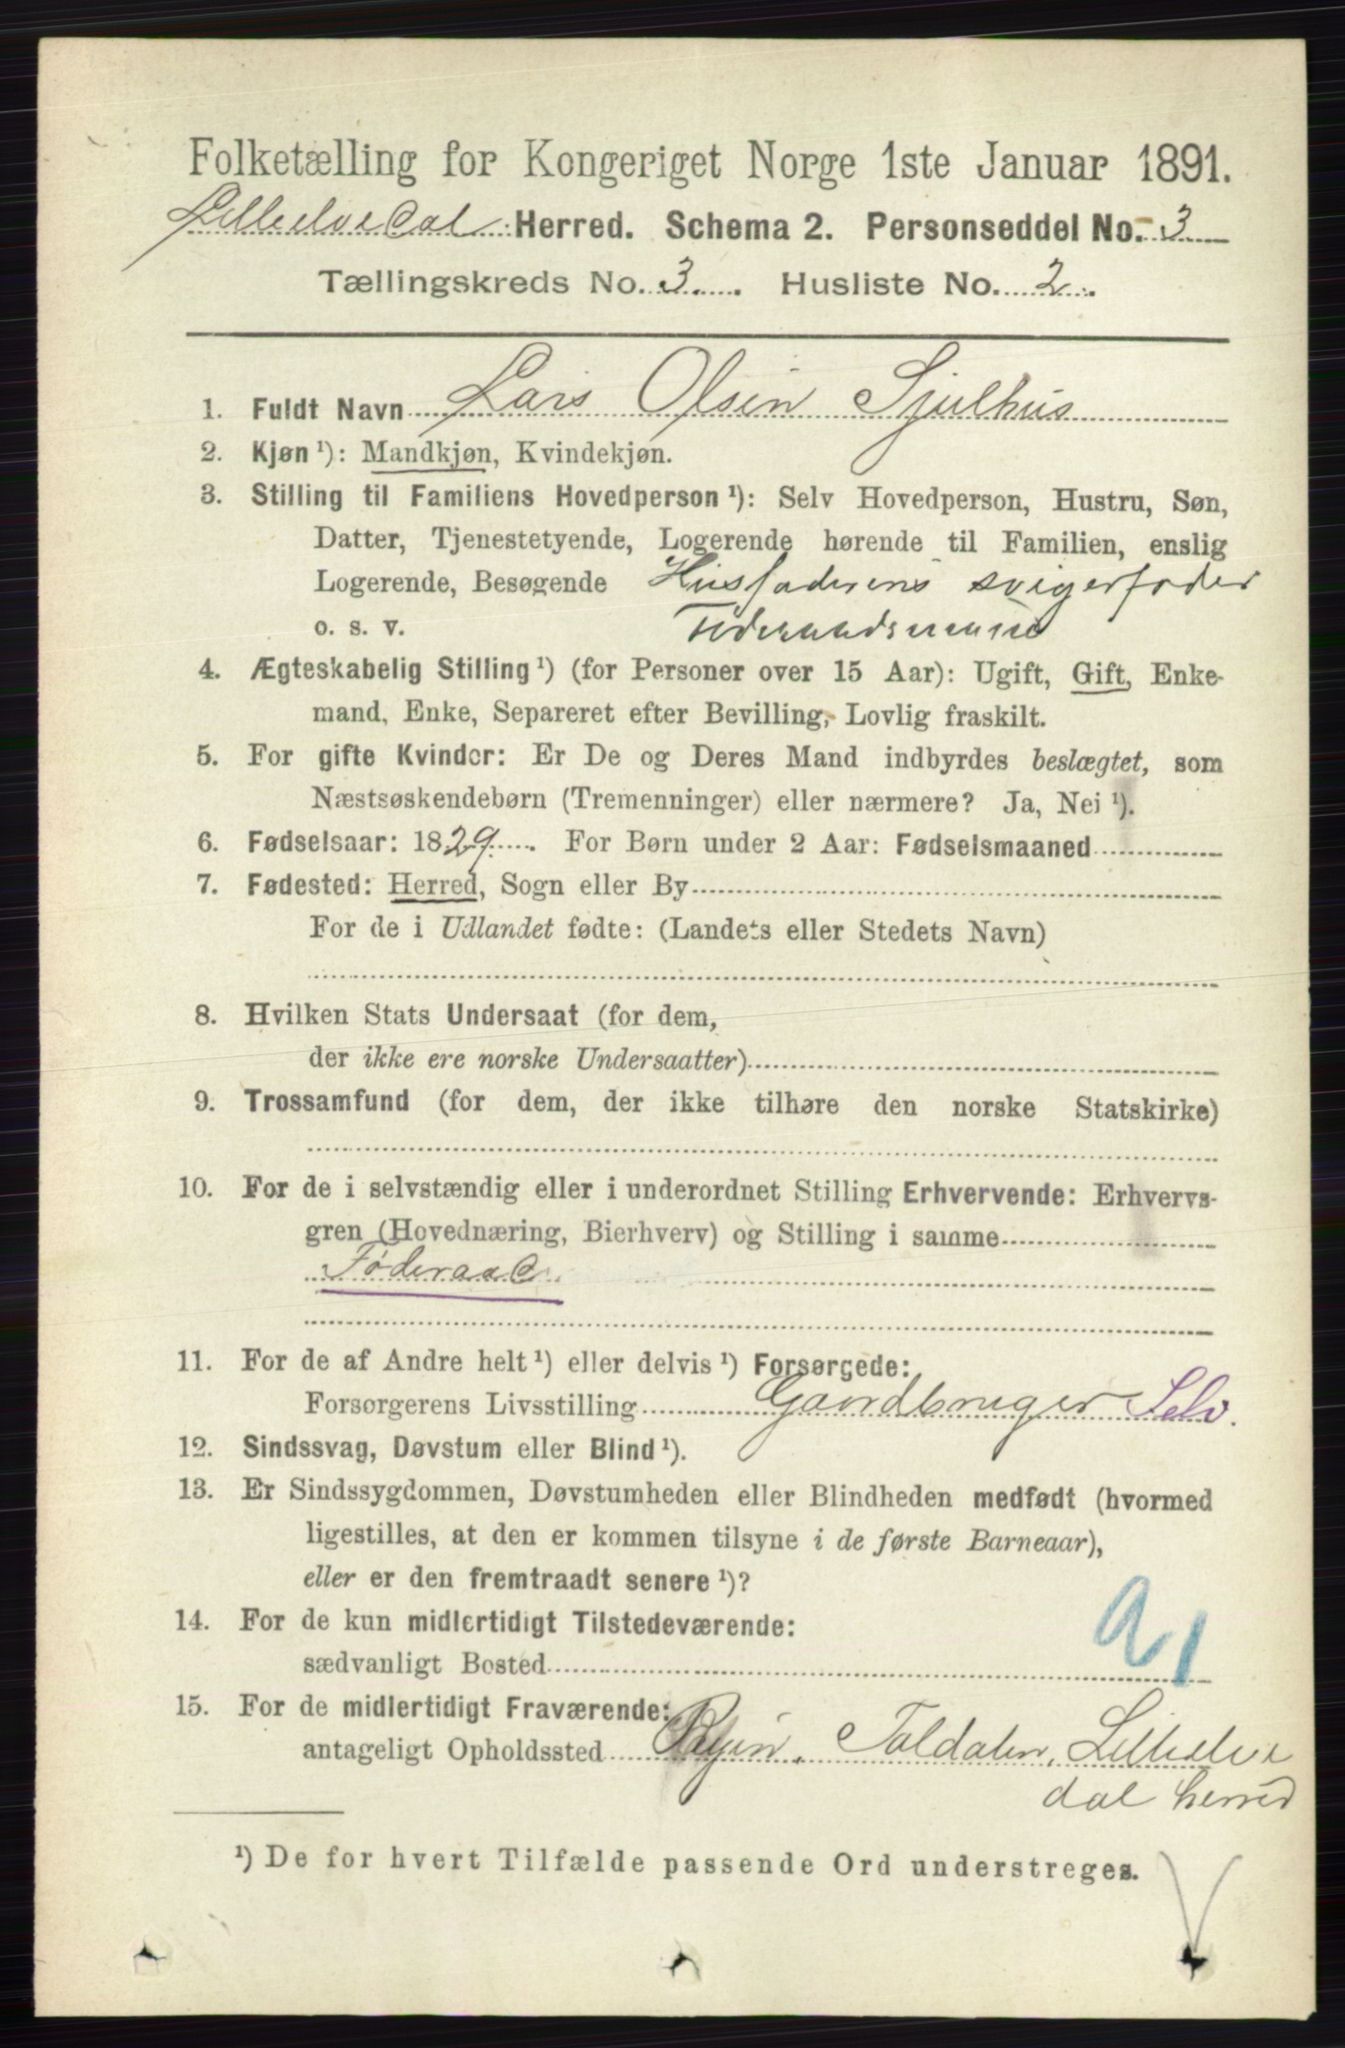 Folketælling for Kongeriget Norge 1ste Januar 1891.
Lilleelvedal Herred. Schema 2. Personseddel No. 3
Tællingskreds No. 3. Husliste No. 2.
1. Fuldt Navn Lars Olsen Sjulhus
2. Kjøn ¹): Mandkjøn, Kvindekjøn.
3. Stilling til Familiens Hovedperson ¹): Selv Hovedperson, Hustru, Søn,
Datter, Tjenestetyende, Logerende hørende til Familien, enslig
Logerende, Besøgende Husfaderens svigerfader
o. s. v. Føderaadsmand
4. Ægteskabelig Stilling ¹) (for Personer over 15 Aar): Ugift, Gift, Enke-
mand, Enke, Separeret efter Bevilling, Lovlig fraskilt.
5. For gifte Kvinder: Er De og Deres Mand indbyrdes beslægtet, som
Næstsøskendebørn (Tremenninger) eller nærmere? Ja, Nei ¹).
6. Fødselsaar: 1829. For Børn under 2 Aar: Fødselsmaaned
7. Fødested: Herred, Sogn eller By
For de i Udlandet fødte: (Landets eller Stedets Navn)
8. Hvilken Stats Undersaat (for dem,
der ikke ere norske Undersaatter)
9. Trossamfund (for dem, der ikke tilhøre den norske Statskirke)
10. For de i selvstændig eller i underordnet Stilling Erhvervende: Erhvervs-
gren (Hovednæring, Bierhverv) og Stilling i samme
Føderaad
11. For de af Andre helt ¹) eller delvis ¹) Forsørgede:
Forsørgerens Livsstilling Gaardbruger Selv.
12. Sindssvag, Døvstum eller Blind ¹).
13. Er Sindssygdommen, Døvstumheden eller Blindheden medfødt (hvormed
ligestilles, at den er kommen tilsyne i de første Barneaar),
eller er den fremtraadt senere ¹)?
14. For de kun midlertidigt Tilstedeværende:
sædvanligt Bosted 21
15. For de midlertidigt Fraværende:
antageligt Opholdssted Foldalen, Lilleelve
dal herred
¹) De for hvert Tilfælde passende Ord understreges.